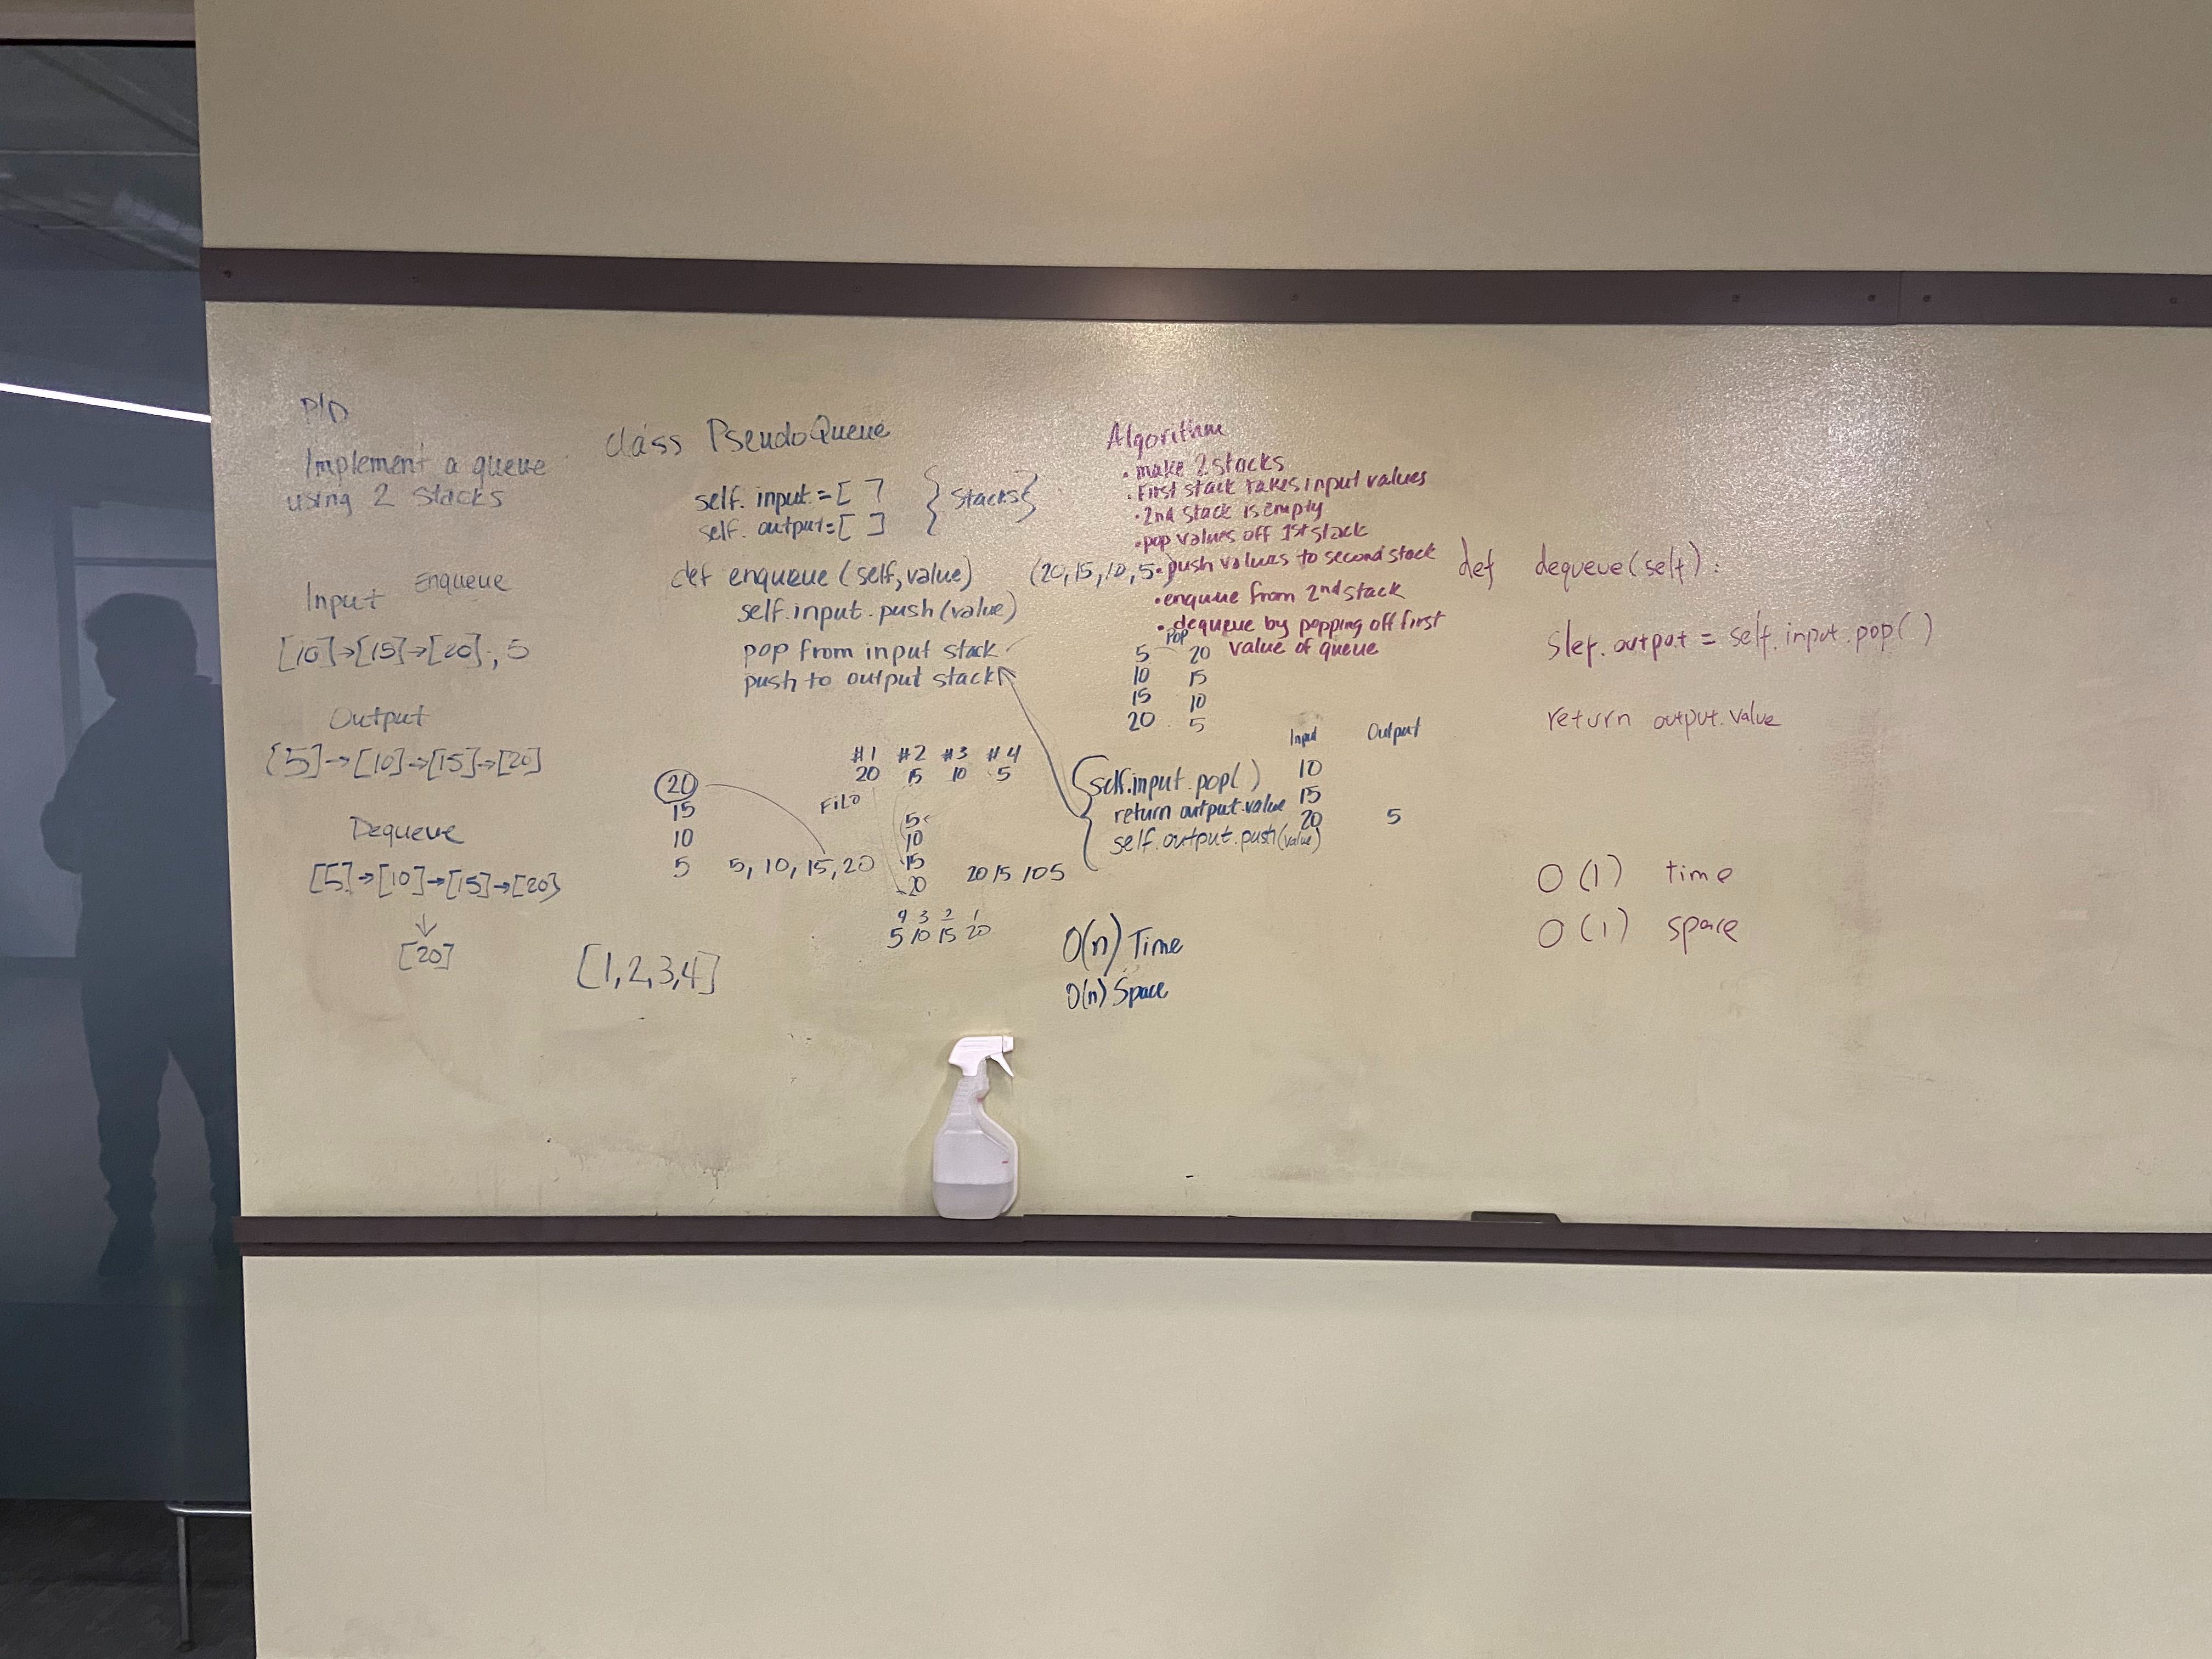 P/D
Implement a queue
using 2 stacks
Input Enqueue
[10]→[15]→[20], 5
Output
[5]→[10]→[15]→[20]
Dequeue
[5]→[10]→[15]→[20]
↓
[20]
class PseudoQueue
self.input = [ ]
self.output = [ ]
{ stacks }
def enqueue (self, value)
self.input.push(value)
pop from input stack
push to output stack
20
15
10
5
5, 10, 15, 20
FILO
#1 #2 #3 #4
20 15 10 5
5
10
15
20
20 15 10 5
4 3 2 1
5 10 15 20
[1,2,3,4]
Algorithm
• make 2 stacks
• First stack takes input values
• 2nd stack is empty
• pop values off 1st stack
(20, 15, 10, 5
• push values to second stack
• enqueue from 2nd stack
• dequeue by popping off first
value of queue
POP
5 20
10 15
15 10
20 5
self.input.pop( )
return output.value
self.output.push(value)
Input Output
10
15
20 5
O(n) Time
O(n) Space
def dequeue(self):
slef.output = self.input.pop( )
return output.value
O (1) time
O (1) space